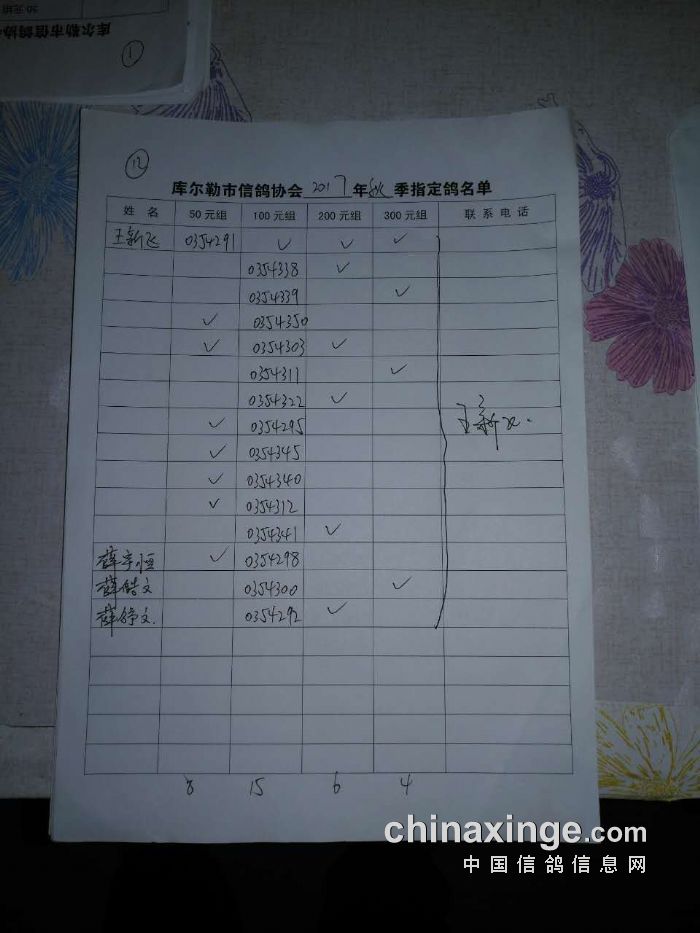 50元组
库尔勒市信鸽协
1
12
库尔勒市信鸽协会 2017 年 秋 季指定鸽名单
姓 名 50元组 100元组 200元组 300元组 联系电话
王新飞 0354291 ✓ ✓ ✓
0354338 ✓
0354339 ✓
✓ 0354350
✓ 0354303 ✓
0354311 ✓
0354322 ✓
✓ 0354295
王新飞
✓ 0354345
✓ 0354340
✓ 0354312
0354341 ✓
薛宇恒 ✓ 0354298
薛皓文 0354300 ✓
薛静文. 0354292 ✓
8 15 6 4
chinaxinge.com
中国信鸽信息网